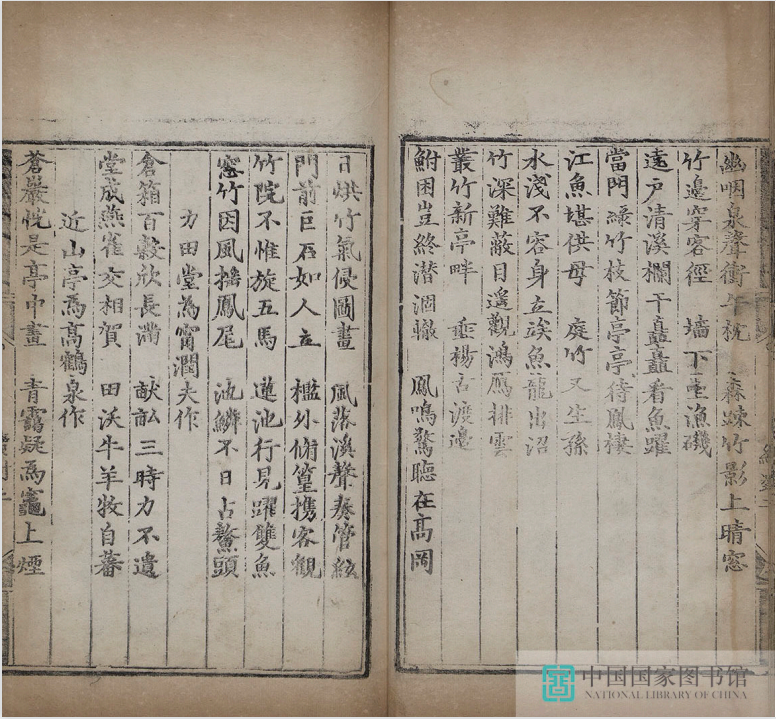 幽咽泉聲衝午枕　森疎竹影上晴窓
竹邊穿客徑　墻下坐漁磯
遠戶清溪欄干矗矗看魚躍
當門綠竹枝節亭亭待鳳棲
江魚堪供母　庭竹又生孫
水淺不容身立談魚龍出沼
竹深難蔽目遥觀鴻鴈排雲
叢竹新亭畔　垂楊古渡邊
鮒困豈終潜涸轍　鳳鳴驚聽在髙岡
日烘竹氣侵圖畫　風落溪聲奏管絃
門前巨石如人立　檻外脩篁携客觀
竹院不惟旋五馬　蓮池行見躍雙魚
窓竹因風摇鳳尾　池鱗不日占鰲頭
力田堂為甯潤夫作
倉箱百穀欣長滿　畎畝三時力不遺
堂成燕雀交相賀　田沃牛羊牧自蕃
近山亭為高鶴泉作
蒼巖恍是亭中畫　青靄疑為竈上煙
中国国家图书馆
NATIONAL LIBRARY OF CHINA